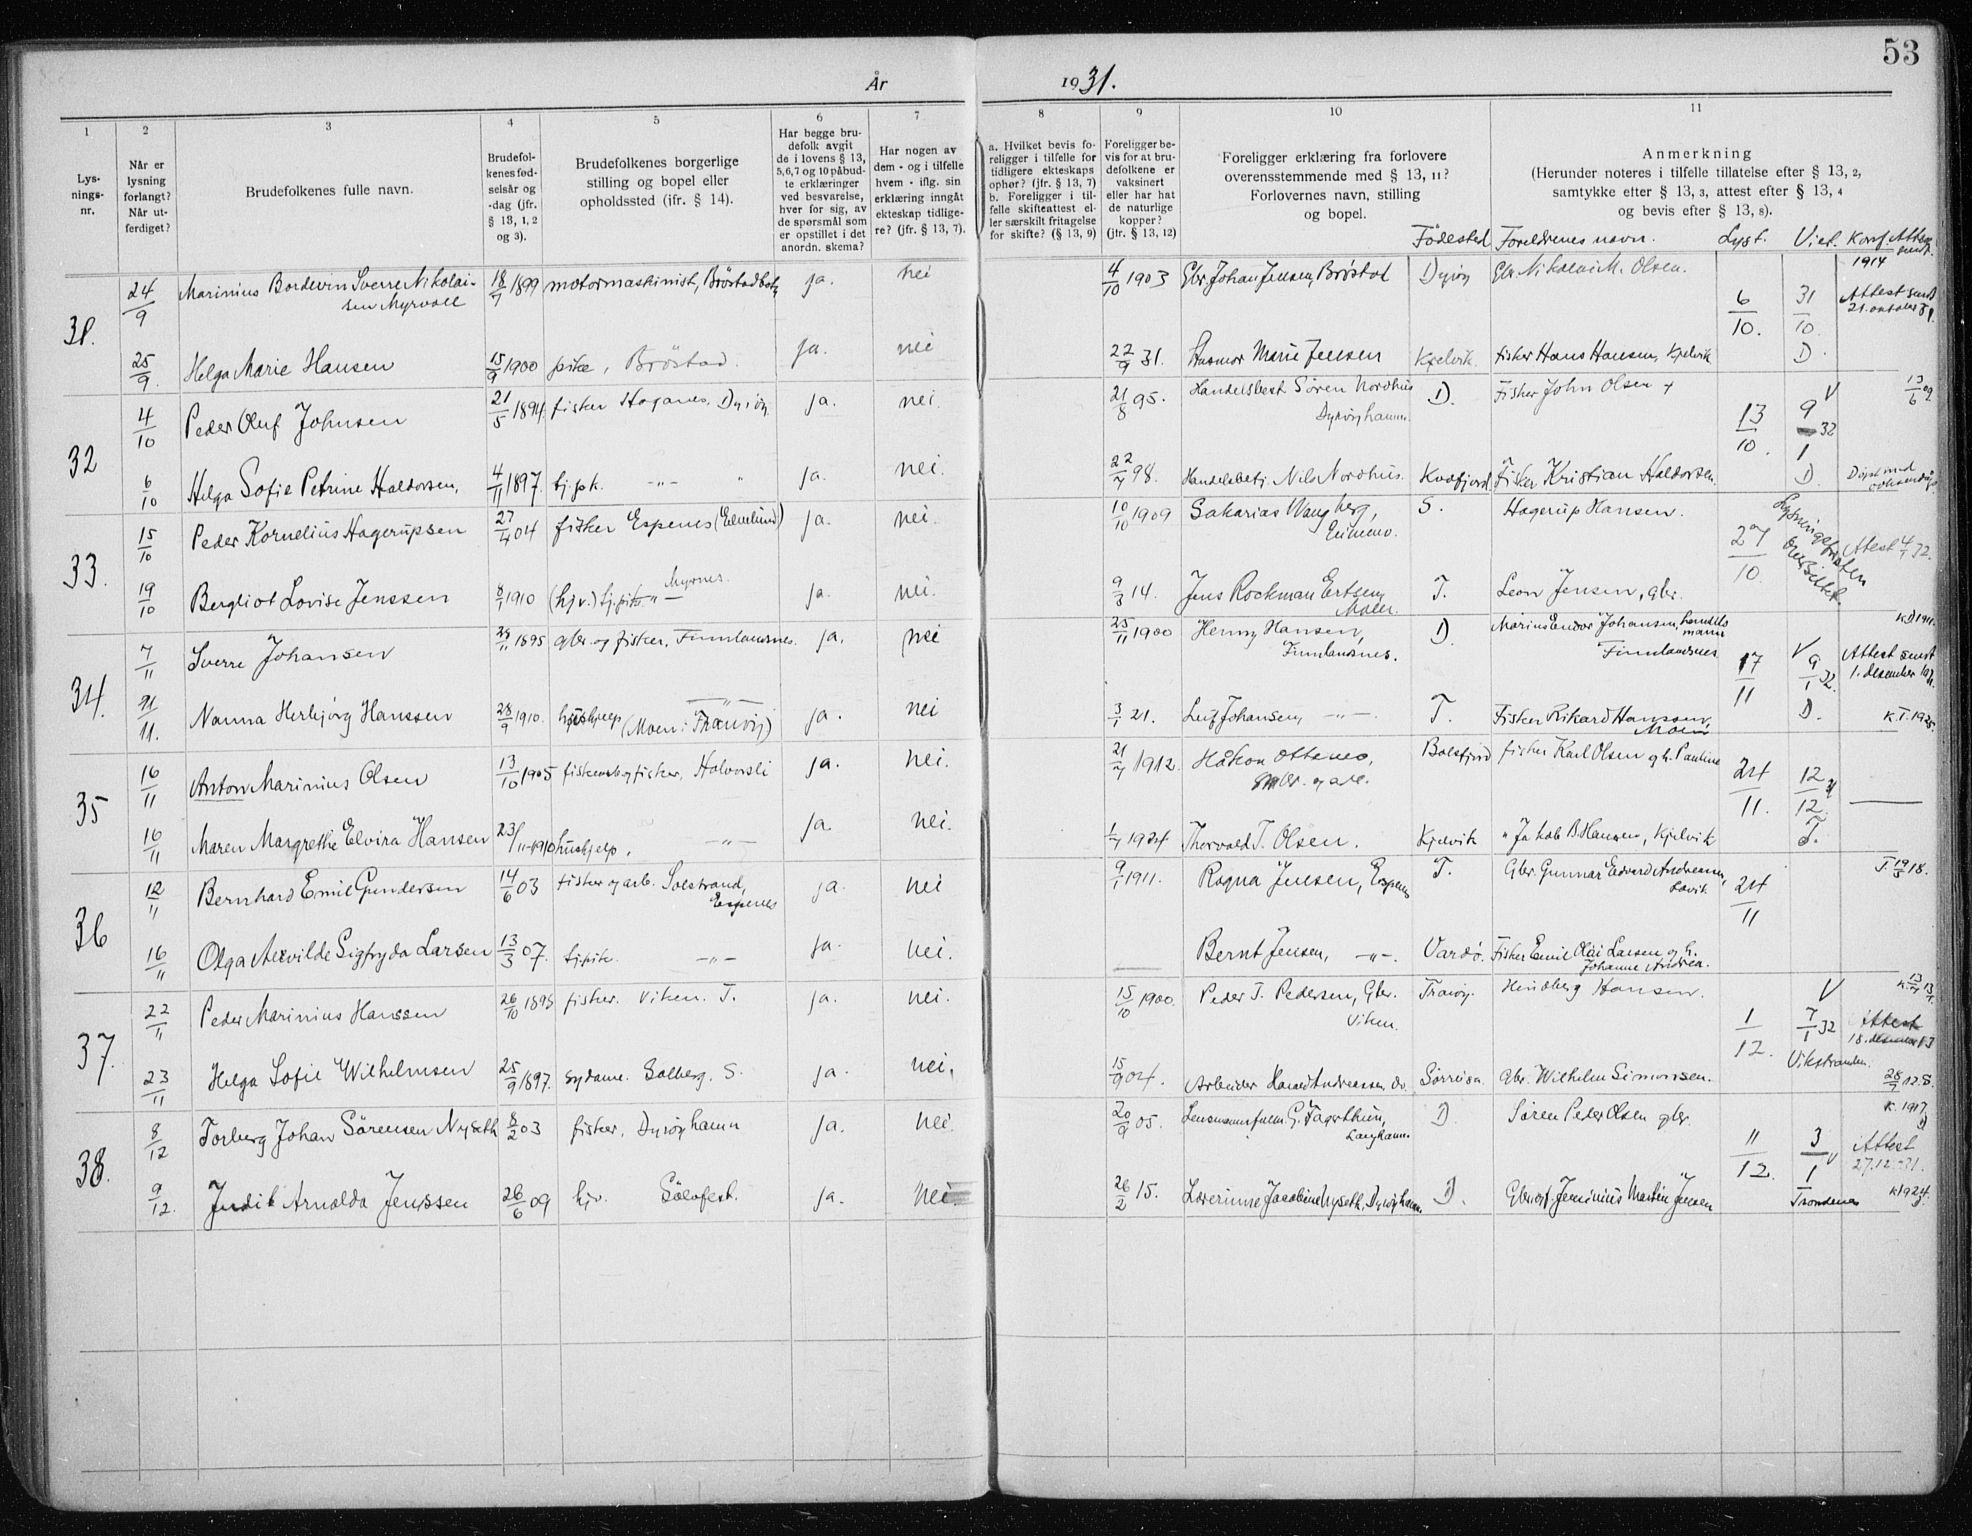 53
År 1931.
1 2 3 4 5 6 7 8 9 10 11
Lys-
nings-
nr.
Når er
lysning
forlangt?
Når ut-
ferdiget?
Brudefolkenes fulle navn.
Brudefol-
kenes fød-
selsår og
-dag (jfr.
§ 13, 1, 2
og 3).
Brudefolkenes borgerlige
stilling og bopel eller
opholdssted (jfr. § 14).
Har begge bru-
defolk avgit
de i lovens § 13,
5, 6, 7 og 10 påbud-
te erklæringer
ved besvarelse,
hver for sig, av
de spørsmål som
er opstillet i det
anordn. skema?
Har nogen av
dem - og i tilfelle
hvem - iflg. sin
erklæring inngått
ekteskap tidlige-
re? (jfr. § 13, 7).
a. Hvilket bevis fo-
religger i tilfelle for
tidligere ekteskaps
ophør? (jfr. § 13, 7)
b. Foreligger i til-
felle skifteattest el-
ler særskilt fritagelse
for skifte? (§ 13, 9)
Foreligger be-
vis for at bru-
defolkene er
vaksinert
eller har hat
de naturlige
kopper?
(jfr. § 13, 12)
Foreligger erklæring fra forlovere
overensstemmende med § 13, 11?
Forlovernes navn, stilling
og bopel.
Anmerkning
(Herunder noteres i tilfelle tillatelse efter § 13, 2,
samtykke efter § 13, 3, attest efter § 13, 4
og bevis efter § 13, 8).
Fødested Foreldrenes navn. Lyst. Viet. Konf. Attest sendt.
31. 24/9 Marinius Bordevin Sverre Nikolai-
sen Myrvoll 18/7 1899 motormaskinist, Brøstadbotn ja. nei 4/10 1903 Gbr. Johan Jensen, Brøstad Dyrøy Gbr. Nikolai M. Olsen. 6/10. 31/10. 1914 Attest sendt 21. oktober 31.
25/9. Helga Marie Hansen 15/9 1900 pike, Brøstad. ja. nei 22/9 31. Husmor Marie Jensen Kjelvik. Fisker Hans Hansen, Kjelvik D.
32 4/10 Peder Oluf Johnsen 21/5 1894. fisker Hoganes, Dyrøy. ja. nei. 21/8 95. Handelsbest. Søren Nordhus
Dyrøyhamn. D. Fisker John Olsen + 13/10. V 9/1 32 13/6 09
6/10 Helga Sofie Petrine Haldorsen, 4/11 1897. tj.pk. -"- " ja. nei. 22/7 98. Handelsbetj. Nils Nordhus. Kvæfjord. Fisker Kristian Haldorsen. D Døpt med
33. 15/10 Peder Kornelius Hagerupsen 27/4 04 fisker Espenes (Edelund) ja. nei. 10/10 1909 Sakarias Wangberg,
S. Hagerup Hansen. 27/10. Lysningsfristen oversittet. Attest 4/1 32.
19/10 Bergliot Lovise Jenssen 8/1 1910 (hjv.) tj.pike -"- Myrnes. ja. nei. 9/3 14. Jens Rockman Ertsen,
Maler. T. Leon Jensen, gbr.
34. 7/11 Sverre Johansen 24/11 1895 gbr. og fisker, Finnlandsnes. ja. nei 25/11 1900 Henny Hansen,
Finnlandsnes. D. Marius Enevor Johansen, handels
mann
Finnlandsnes 17/11 V 9/1 32. K. D 1911. Attest sendt 1. desember 1931.
11/11. Nanna Herbjørg Hanssen 28/9 1910. hushjelp -"- (Moen i Tranøy) ja. nei 3/1 21. Leif Johansen, -"-. T. Fisker Rikard Hanssen,
Moen D. K.T. 1925.
35 16/11 Anton Marinius Olsen 13/10 1905 fiskensbyfisker, Halvorsli ja. nei. 21/7 1912. Håkon Ottemo,
Balsfjord fisker Karl Olsen og h. Pauline 24/11. 12/12 31
16/11 Maren Margrethe Elvira Hansen 23/11-1910 hushjelp, -"- ja. nei. 1/7 1924 Thorvald T. Olsen. Kjelvik " Jakob B. Hansen, Kjelvik T.
36 12/11 Bernhard Emil Gundersen 14/6 03 fisker og arb. Solstrand,
Espenes ja. nei 9/1 1911. Ragna Jensen, Espenes T. Gbr. Gunnar Edvard Andreassen,
Løvik. 24/11 T. 19/5 18.
16/11 Olga Alexvilde Sigfryda Larsen 13/3 07. tj.pik. -"- ja. nei. Bernt Jensen, -"-. Vardø. Fisker Emil Olai Larsen og h.
Johanne Andrea.
37. 22/11 Peder Marinius Hanssen 26/10 1898 fisker. Viken. T. ja. nei. 15/10 1900. Peder T. Pedersen, Gbr.
Viken. Tranøy. Hindberg Hansen. 1/12. V 7/1 32 K. 13/7 13 Attest 18. desember
23/11 Helga Sofie Wilhelmsen 25/9 1897. sydame. Solberg. S. ja. nei. 15/9 04. Arbeider Harald Andreassen, do. Sørreisa. Gbr. Wilhelm Simonsen. Vikstranden. 28/7 12 S.
38. 8/12 Torberg Johan Sørensen Nyseth 8/2 03 fisker, Dyrøyhamn ja. nei. 20/9 05. Lensmannsfullm. G. Fagertun,
Langhamn. D. Søren Peder Olsen gbr. 11/12. 3/1 V K. 1917 D Attest 27.12.31.
9/12. Judit Arnolda Jenssen 26/6 09 hjv. Sølvfest. ja. nei 26/2 15. Lærerinne Jacobine Nyseth, Dyrøyhamn. D. Gbr. og f. Jeminius Martin Jensen Trondenes K 1924.